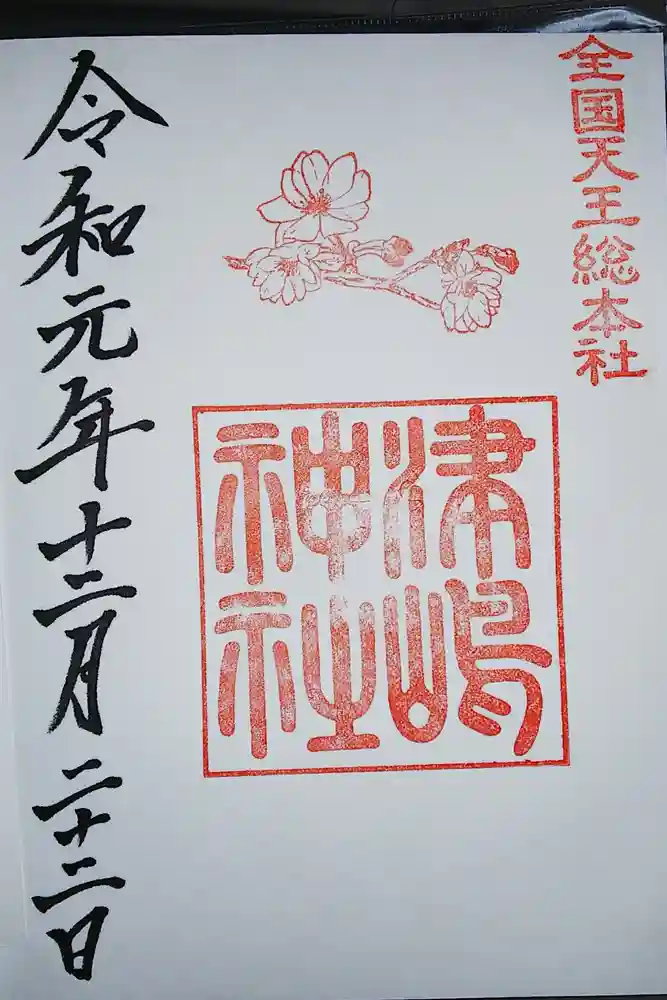 全国天王総本社
津嶋
神社
令和元年十二月二十二日